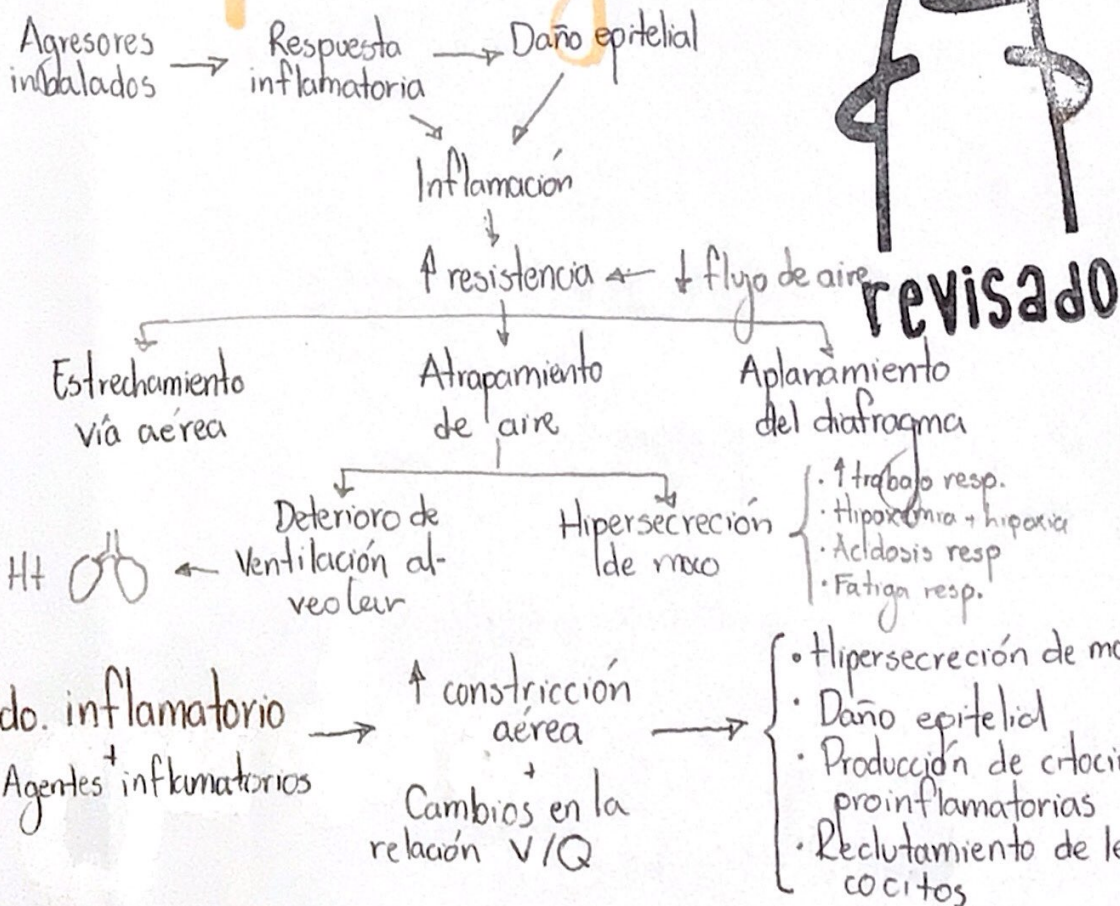 Agresores
inhalados
Respuesta
inflamatoria
Daño epitelial
Inflamación
↑ resistencia ← ↓ flujo de aire
revisado
Estrechamiento
vía aérea
Atrapamiento
de aire
Aplanamiento
del diafragma
Deterioro de
Ventilación al-
veolar
Hipersecreción
de moco
· ↑ trabajo resp.
· Hipoxemia + hipoxia
· Acidosis resp
· Fatiga resp.
do. inflamatorio
+
Agentes inflamatorios
↑ constricción
aérea
+
Cambios en la
relación V/Q
· Hipersecreción de mo
· Daño epitelial
· Producción de citoci
proinflamatorias
· Reclutamiento de le
cocitos